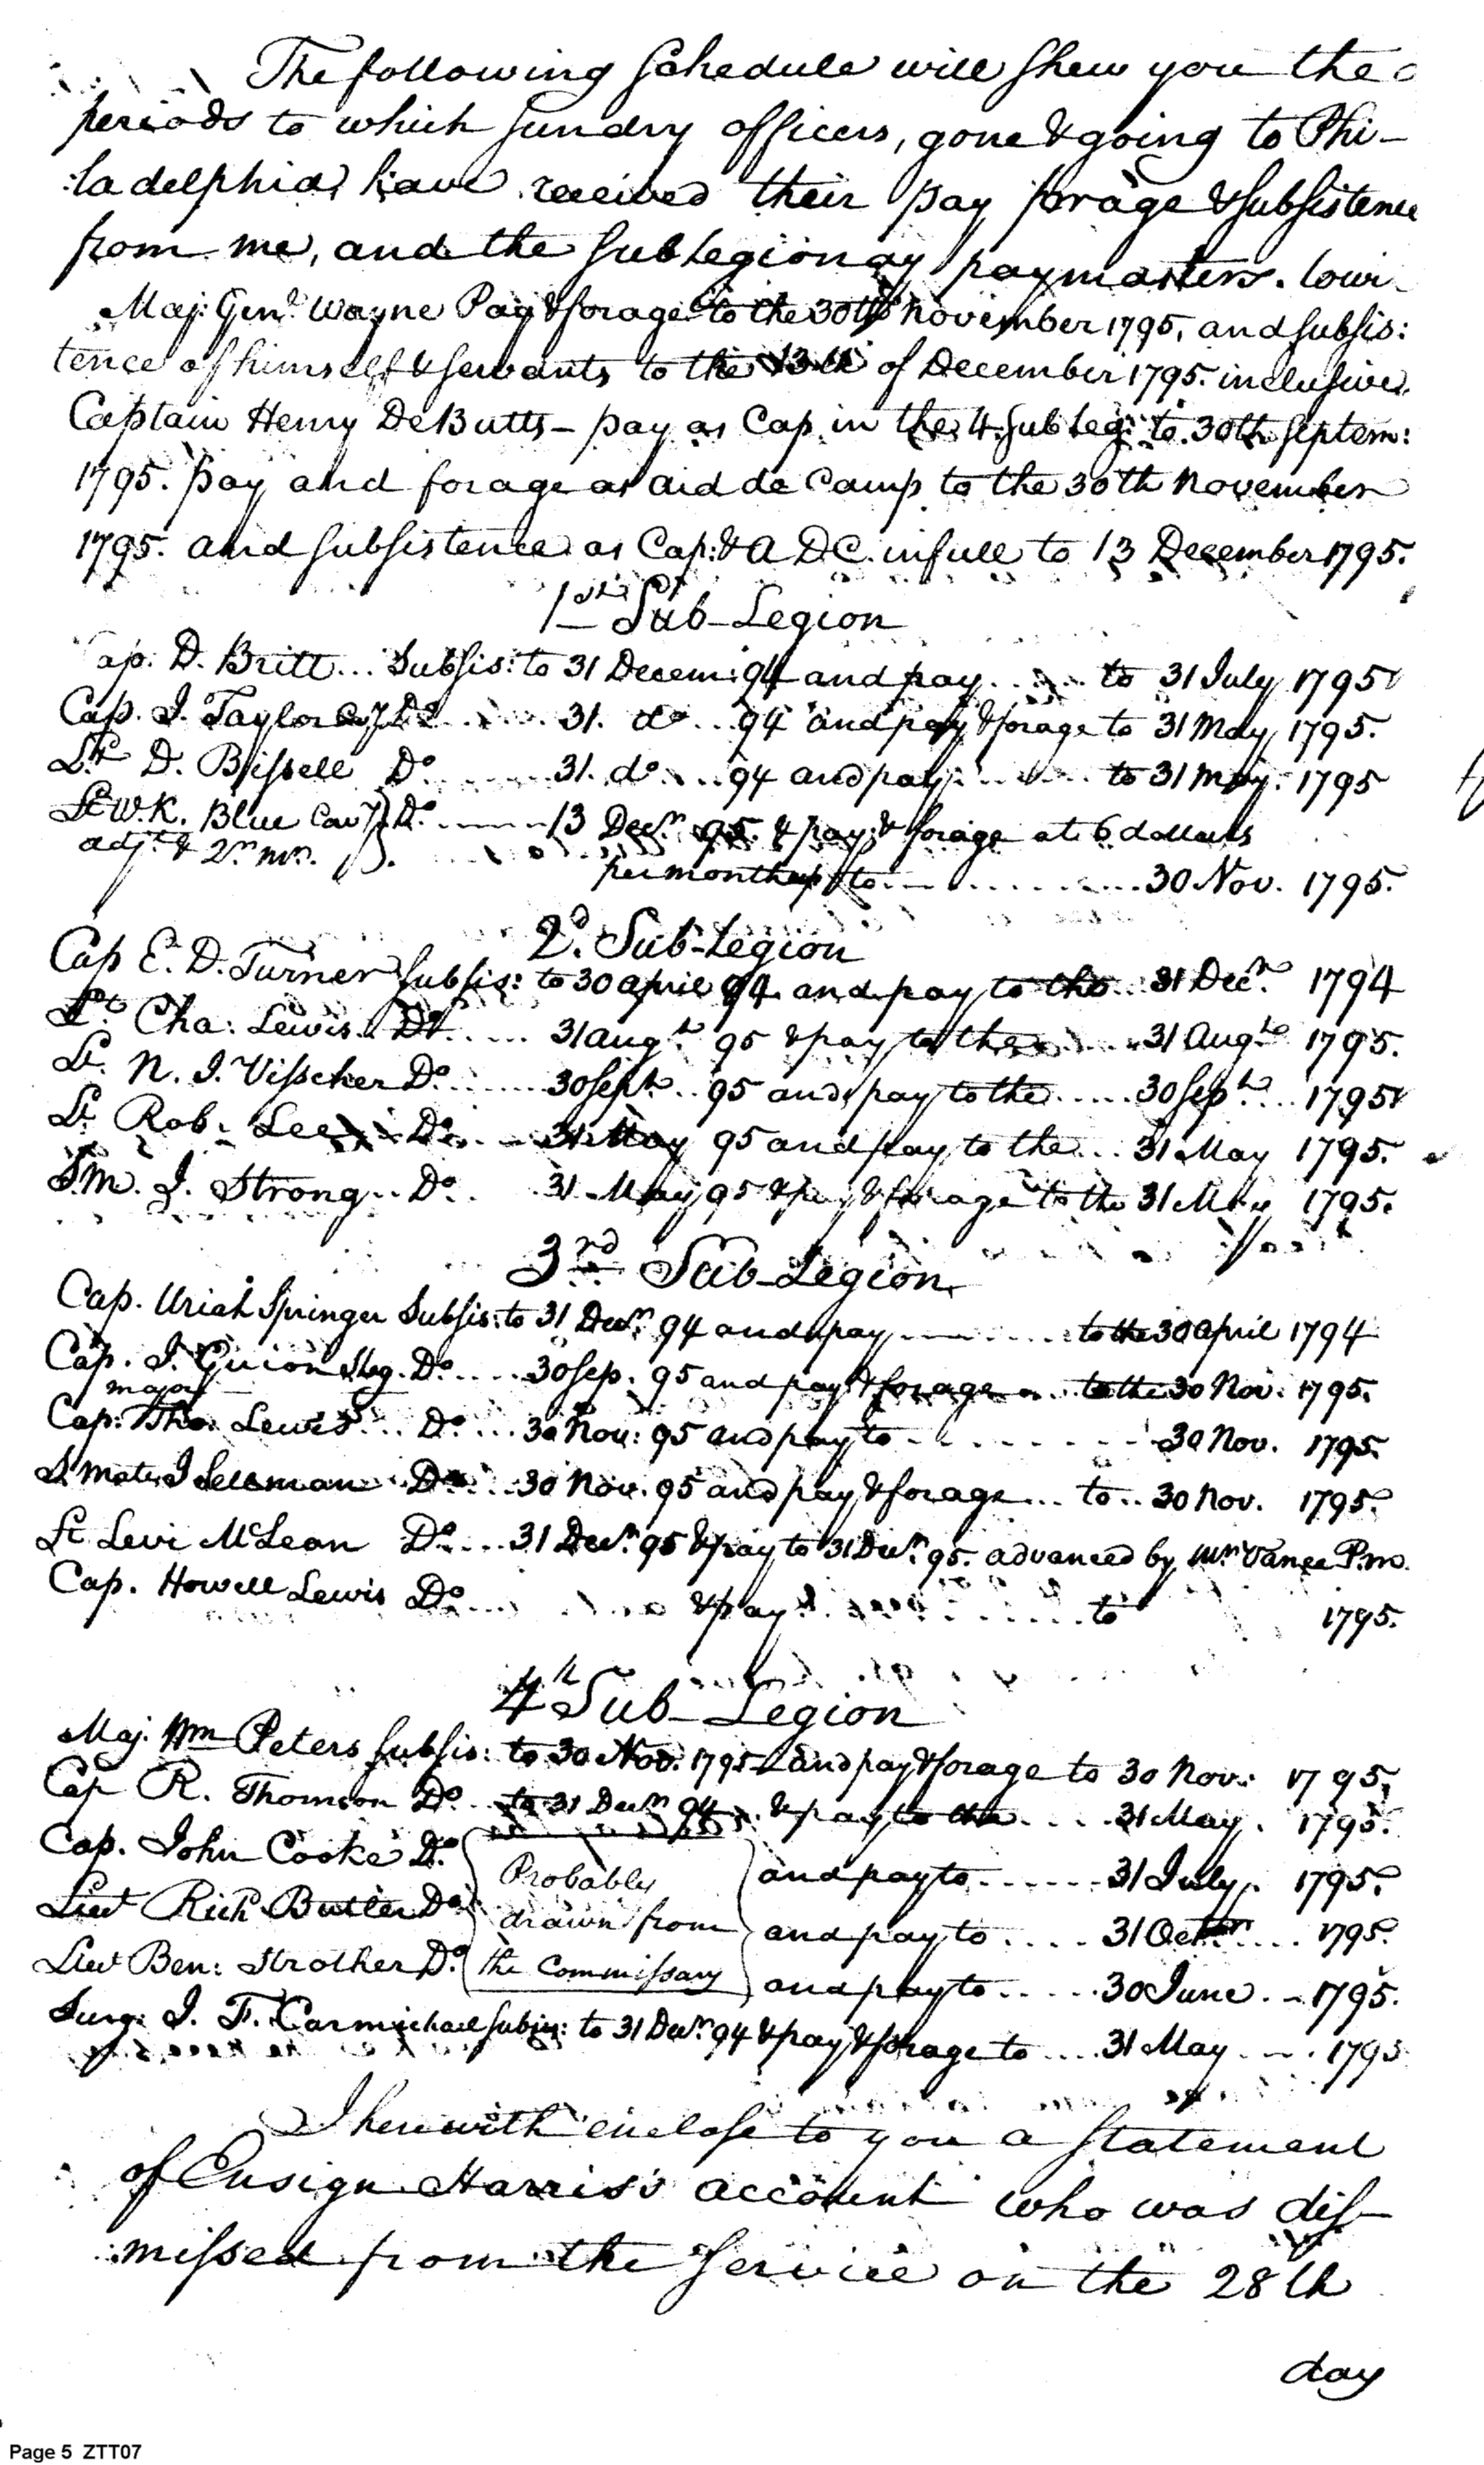 The following Schedule will shew you the
periods to which sundry officers, gone & going to Phi-
ladelphia, have received their pay forage & subsistence
from me, and the sublegionary paymasters.
Maj: Genl. Wayne Pay & forage to the 30th November 1795, and subsis:
tence of himself & servants to the 13th of December 1795. inclusive.
Captain Henry DeButts - pay as Cap. in the 4. Sub Leg: to 30th Septem:
1795. pay and forage as aid de Camp to the 30th November
1795. and subsistence as Cap: & A D C. in full to 13 December 1795.
1st Sub-Legion
Cap. D. Britt... Subsis: to 31 Decem: 94 and pay.... to 31 July 1795
Cap. J. Taylor Do ... 31. do... 94 and pay & forage to 31 May 1795.
Lt. D. Bissell Do ...... 31. do.... 94 and pay....... to 31 May. 1795
Lt W. K. Blue Cavy } Do. ----- 13 Decr. 95. & pay & forage at 6 dollars
adjt. & Qr. mr. }. per month up to............ 30 Nov. 1795.
2d. Sub-Legion
Cap E. D. Turner Subsis: to 30 April 94 and pay to the.. 31 Decr. 1794
Lt. Cha: Lewis.. Do..... 31 Augt. 95 & pay to the.... 31 Augt. 1795.
Lt. N. J. Visscher Do....... 30 Sept... 95 and pay to the..... 30 Sept.... 1795
Lt. Rob. Lee Do.... 31 May 95 and pay to the... 31 May 1795.
S.M. J. Strong.. Do.. 31 May 95 & pay & forage to the 31 May 1795.
3rd Sub-Legion
Cap. Uriah Springer Subsis: to 31 Decr. 94 and pay......... to the 30 April 1794
Cap. J. Guion Do..... 30 Sep. 95 and pay & forage... to the 30 Nov: 1795.
major
Cap: Tho: Lewis... Do.... 30 Nov: 95 and pay to......... 30 Nov. 1795.
S. mate J Sellman Do.... 30 Nov. 95 and pay & forage... to.. 30 Nov. 1795.
Lt Levi McLean Do.... 31 Decr. 95 & pay to 31 Decr. 95. advanced by Mr Vance P.m.
Cap. Howell Lewis Do.... & pay........... to 1795.
4th Sub-Legion
Maj. Wm Peters Subsis: to 30 Nov. 1795 and pay & forage to 30 Nov: 1795.
Cap R. Thomson Do.. to 31 Decr 94.. & pay to the.... 31 May. 1795.
Cap. John Cooke Do. { Probably } and pay to...... 31 July. 1795.
Lieut Richd Butler Do. { drawn from } and pay to.... 31 Octr..... 1795.
Lieut Ben: Strother Do. { the Commissary } and pay to..... 30 June.. 1795.
Surg: J. F. Carmichael Subsis: to 31 Decr. 94 & pay & forage to.... 31 May.... 1795
I herewith enclose to you a statement
of Ensign Harris's account who was dis-
missed from the service on the 28th
day
Page 5 ZTT07